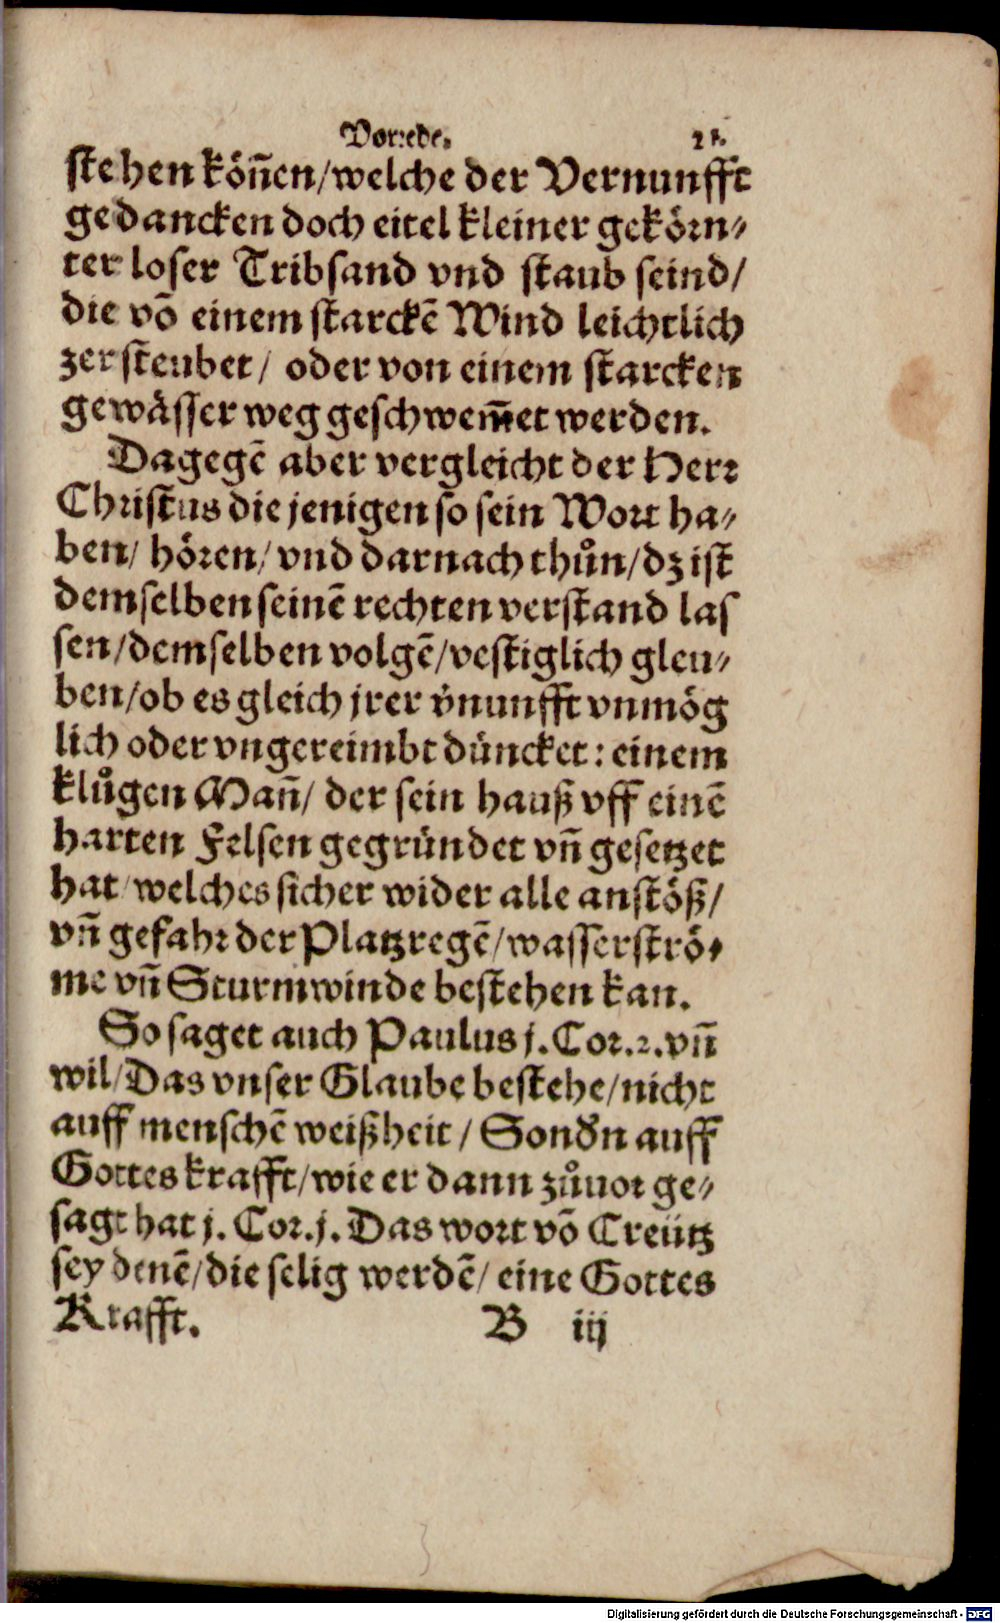 Vorrede. 21.
stehen köñen/welche der Vernunfft
gedancken doch eitel kleiner gekörn⸗
ter loser Tribsand vnd staub seind/
die võ einem starckẽ Wind leichtlich
zersteubet/ oder von einem starcken
gewässer weg geschwem̃et werden.
Dagegẽ aber vergleicht der Herr
Christus die jenigen so sein Wort ha⸗
ben/ hören/ vnd darnach thůn/dz ist
demselben seinẽ rechten verstand las
sen/demselben volgẽ/vestiglich gleu⸗
ben/ob es gleich jrer v̓nunfft vnmög
lich oder vngereimbt düncket: einem
klůgen Mañ/ der sein hauß vff einẽ
harten Felsen gegründet vñ gesetzet
hat/welches sicher wider alle anstöß/
vñ gefahr der Platzregẽ/wasserströ⸗
me vñ Sturmwinde bestehen kan.
So saget auch Paulus j. Cor.2.vñ
wil/Das vnser Glaube bestehe/nicht
auff menschẽ weißheit/ Sondn auff
Gottes krafft/wie er dann zůuor ge⸗
sagt hat j. Cor.j. Das wort võ Creütz
sey denẽ/die selig werdẽ/ eine Gottes
Krafft. B iij
Digitalisierung gefördert durch die Deutsche Forschungsgemeinschaft - DFG